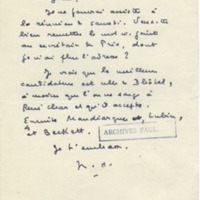 Je ne pourrai assister à
la réunion de samedi. Veux-tu
bien remettre le mot ci-joint
au secrétaire du Prix, dont
je n'ai plus l'adresse ?
Je crois que la meilleure
candidature est celle de Dhôtel,
à moins que l'on ne songe à
René Char et qu'il accepte.
Ensuite Mandiargues, et Lubin,
et Beckett.
ARCHIVES PAUL
Je t'embrasse.